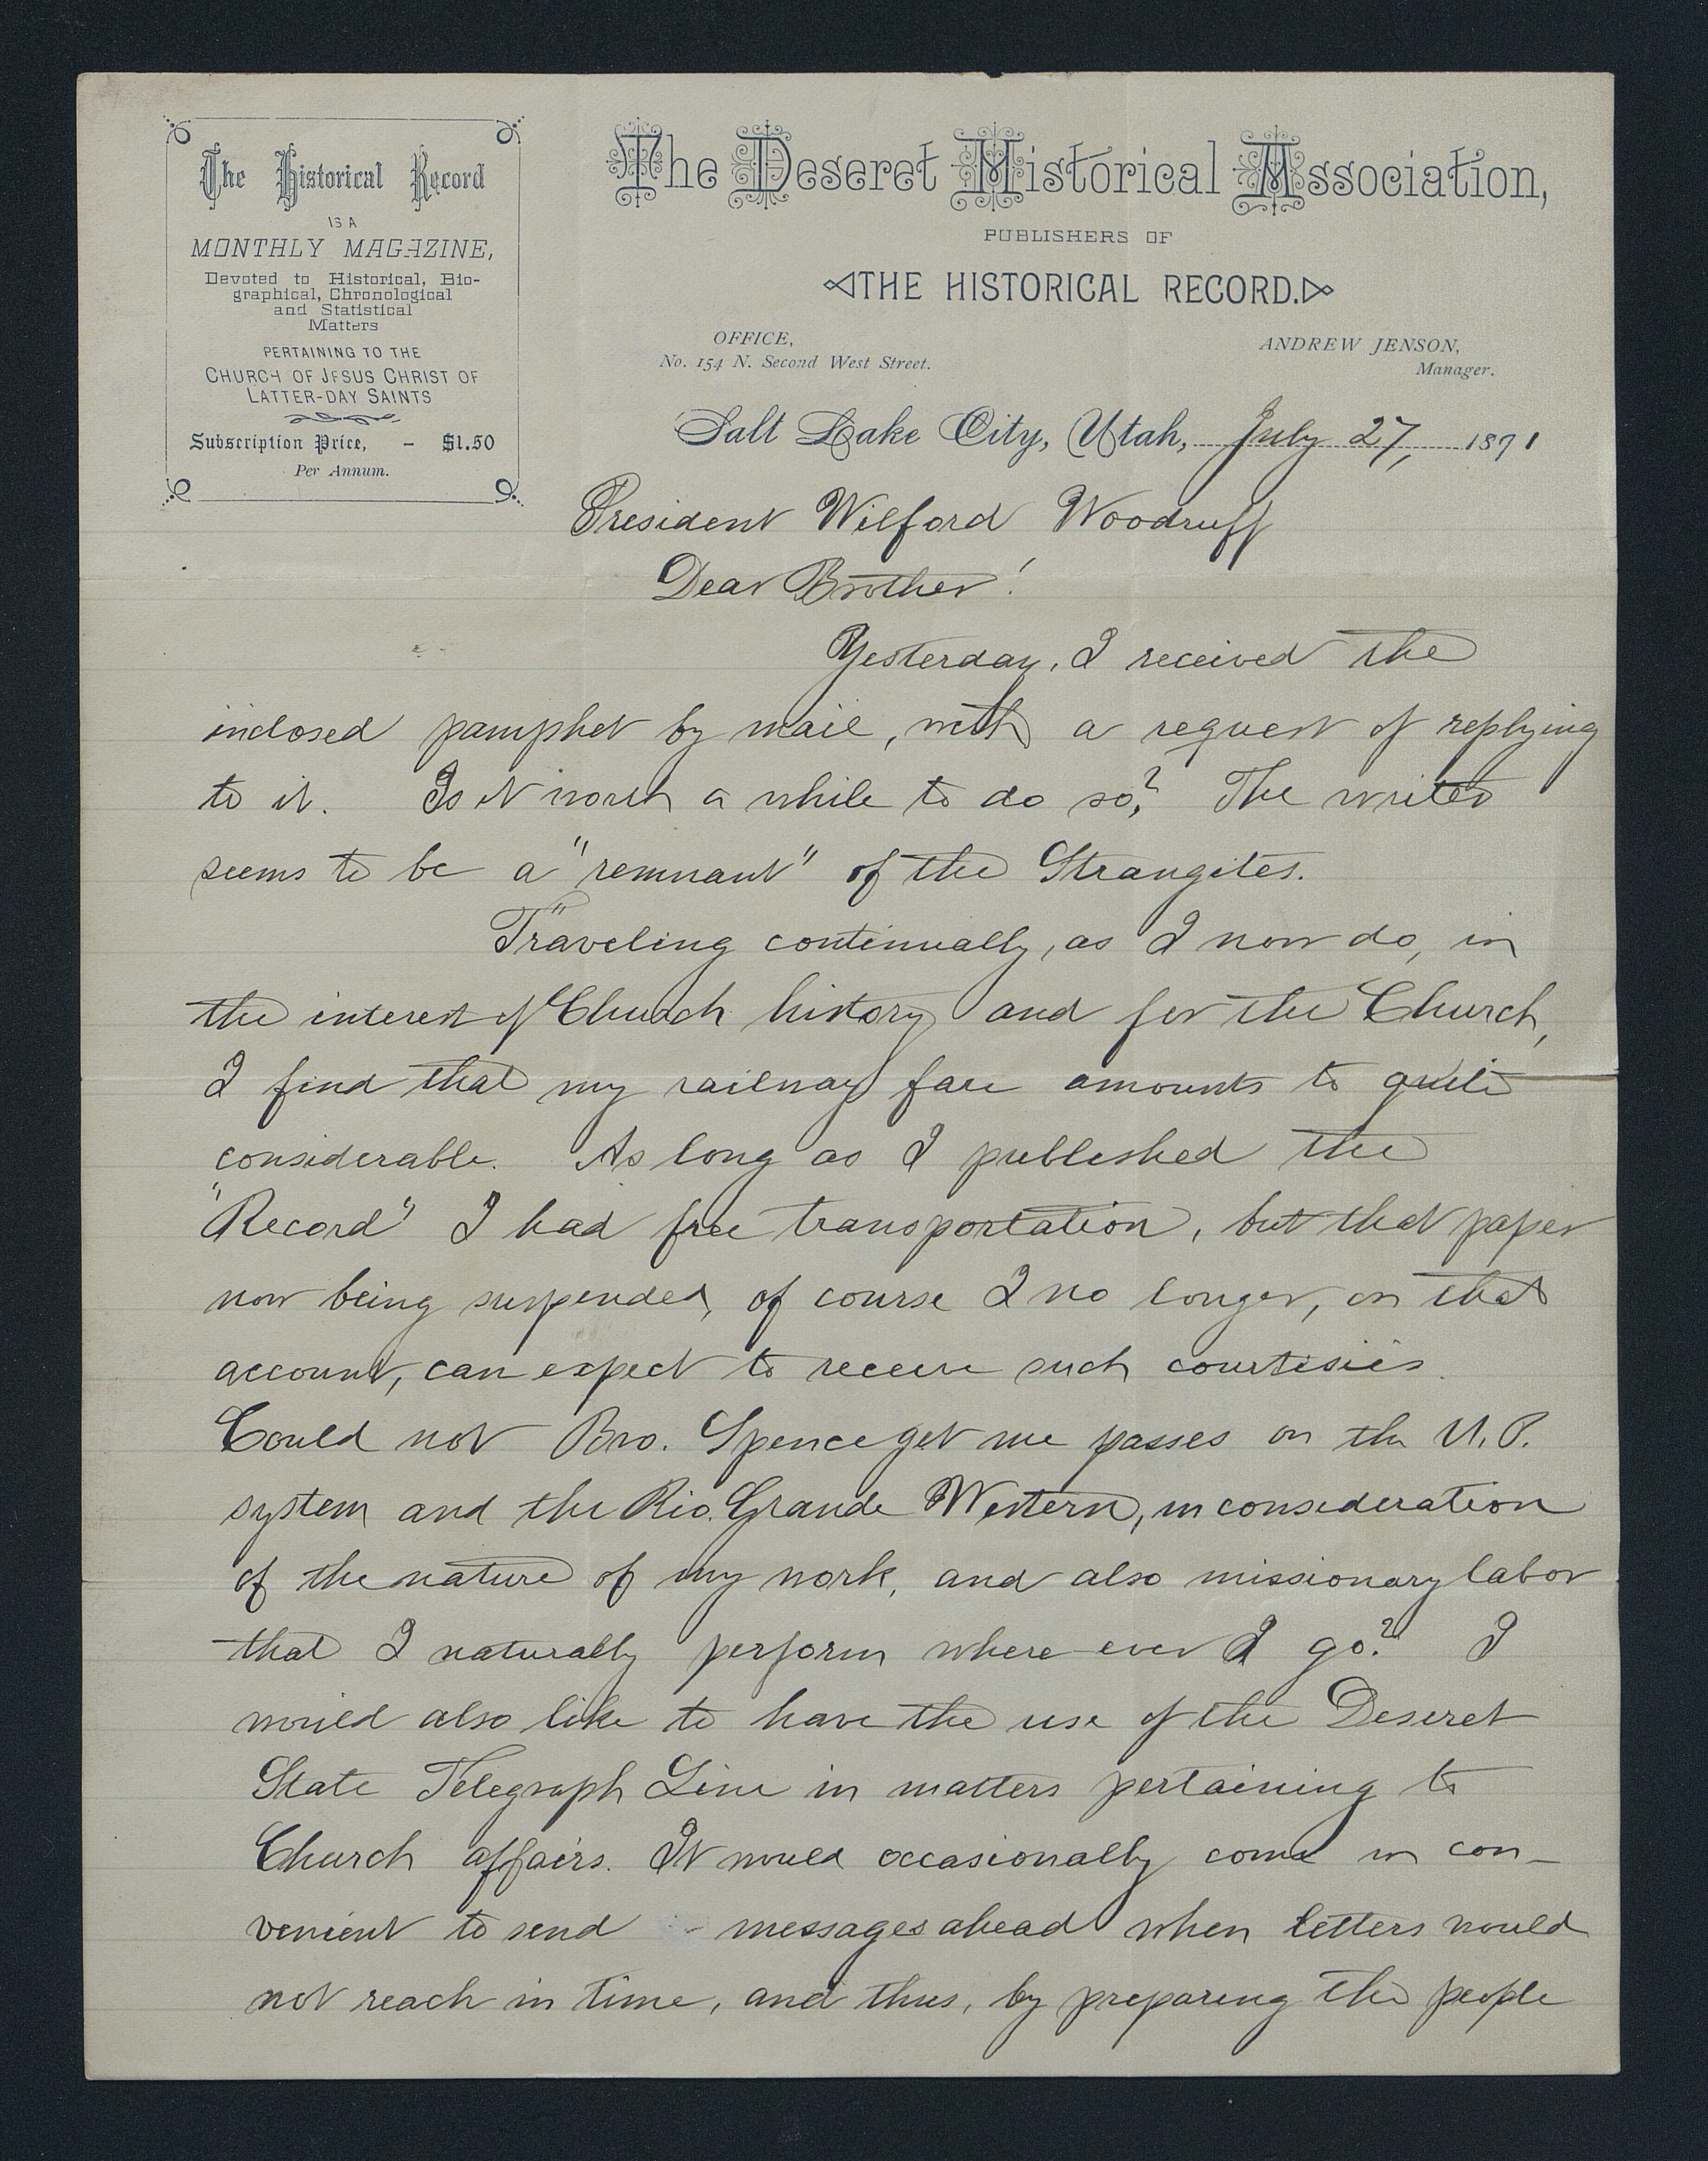 The Historical Record
IS A
MONTHLY MAGAZINE,
Devoted to Historical, Bio-
graphical, Chronological
and Statistical
Matters
PERTAINING TO THE
CHURCH OF JESUS CHRIST OF
LATTER-DAY SAINTS
Subscription Price, - $1.50
Per Annum.
The Deseret Historical Association,
PUBLISHERS OF
THE HISTORICAL RECORD.
OFFICE,
No. 154 N. Second West Street.
ANDREW JENSON,
Manager.
Salt Lake City, Utah, July 27, 1891
President Wilford Woodruff
Dear Brother!
Yesterday, I received the
inclosed pamphet by mail, with a request of replying
to it. Is it worth a while to do so? The writer
seems to be a "remnant" of the Strangites.
Traveling continually, as I now do, in
the interest of Church history and for the Church,
I find that my railway fare amounts to quite
considerable. As long as I published the
"Record" I had free transportation, but that paper
now being suspended, of course I no longer, on that
account, can expect to receive such courtisies.
Could not Bro. Spence get me passes on the U.P.
system and the Rio Grande Western, in consideration
of the nature of my work, and also missionary labor
that I naturally perform where ever I go? I
would also like to have the use of the Deseret
State Telegraph Line in matters pertaining to
Church affairs. It would occasionally come in con-
venient to send messages ahead when letters would
not reach in time, and thus, by preparing the people